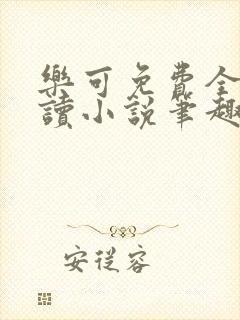 樂可免費全
讀小說筆趣
安從容